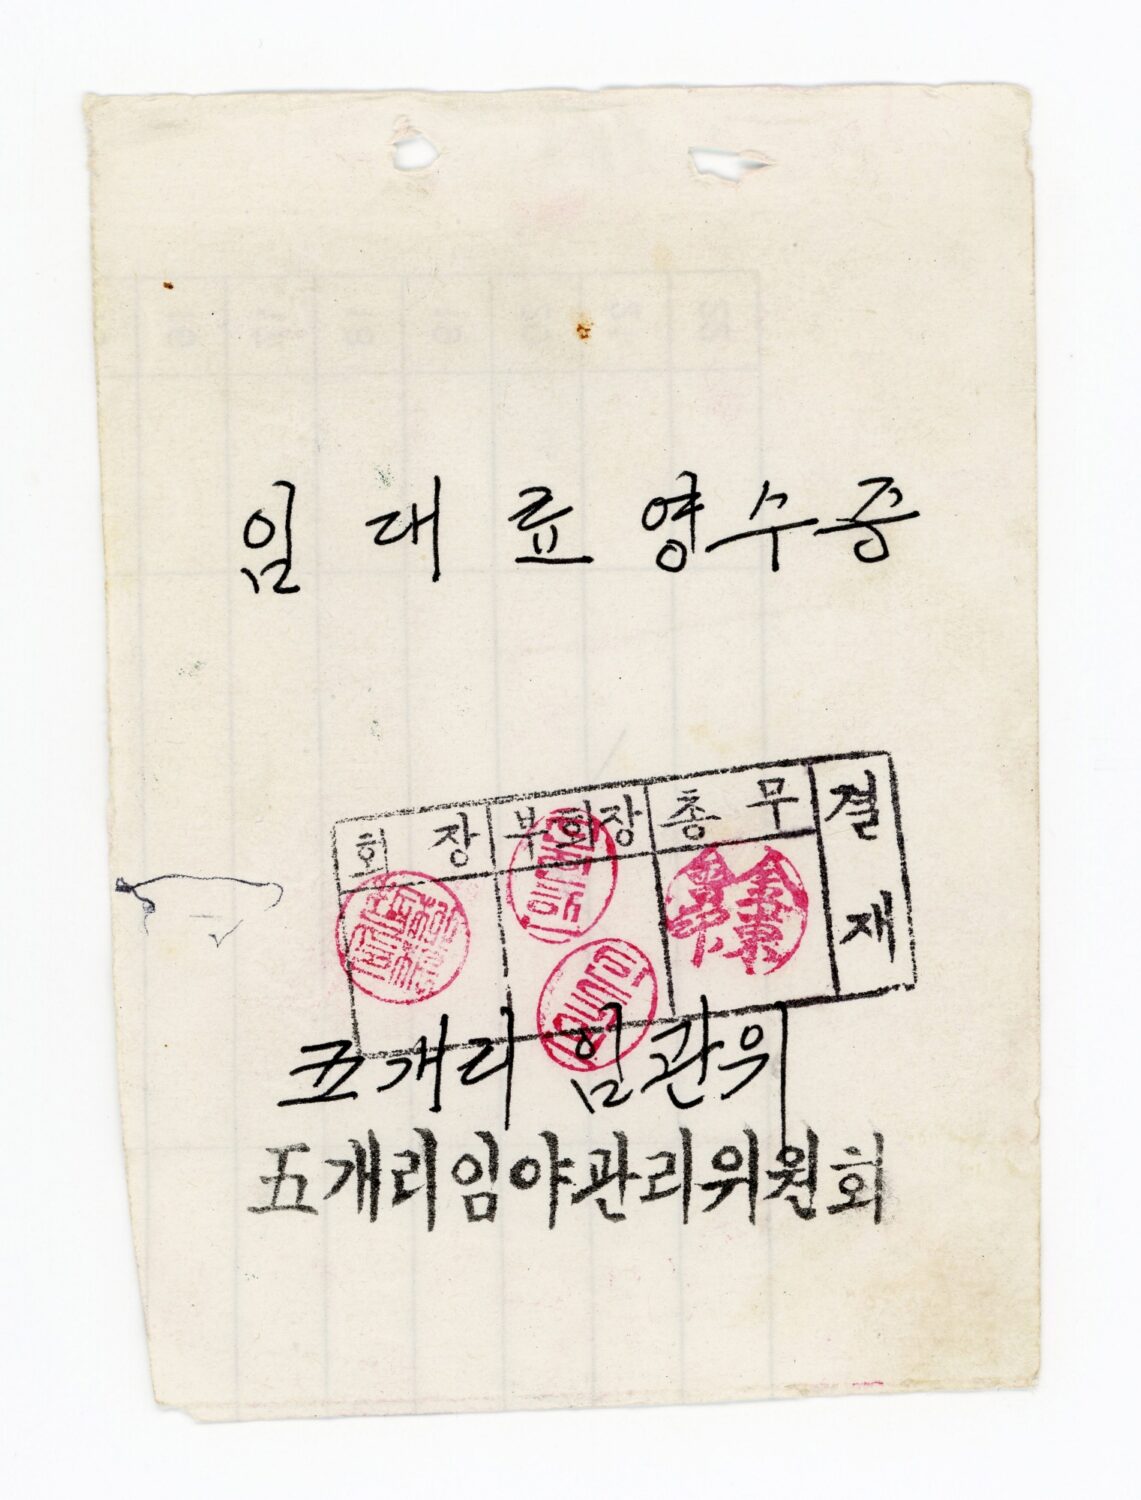 임대료 영수증
회장 부회장 총무 결재
五개리 임관위
五개리임야관리위원회